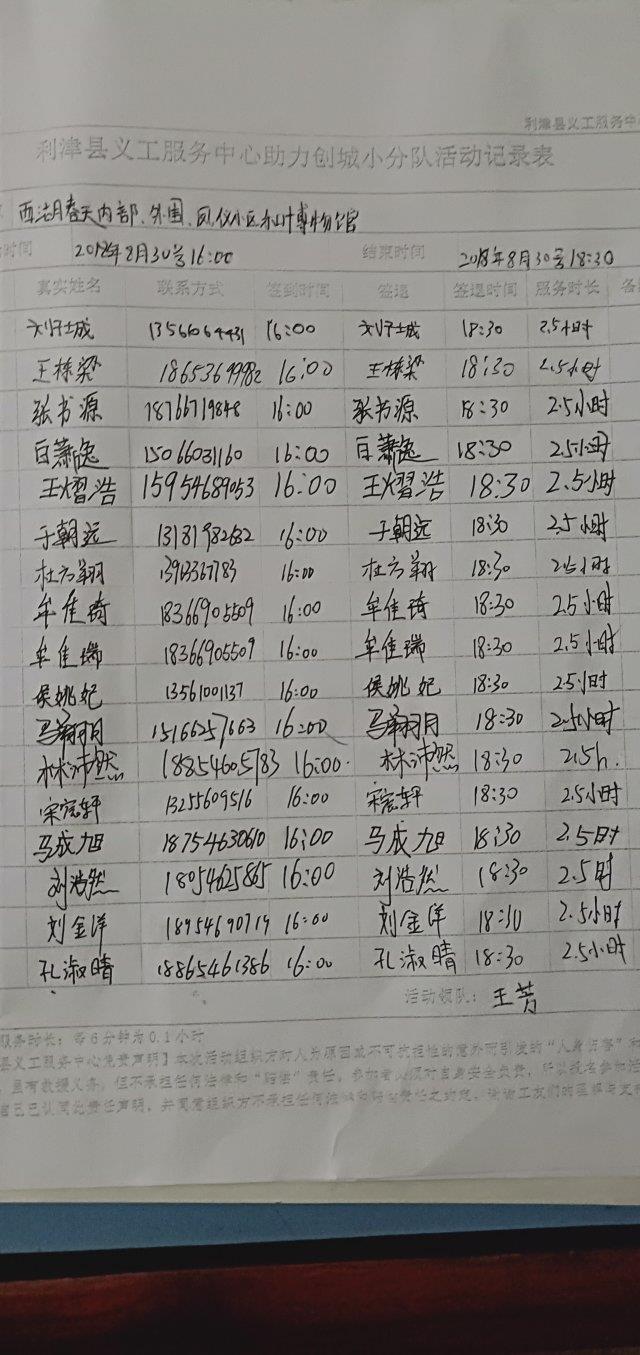 利津县义工服务中
利津县义工服务中心助力创城小分队活动记录表
西湖春天内部、外围、凤仪小区和博物馆
时间 2018年8月30号16:00 结束时间 2018年8月30号18:30
真实姓名 联系方式 签到时间 签退 签退时间 服务时长 备
16:00 18:30 2.5小时
王栋梁 18653699982 16:00 王栋梁 18:30 2.5小时
张书源 18766719848 16:00 张书源 18:30 2.5小时
白萧逸 15066031160 16:00 白萧逸 18:30 2.5小时
王熠浩 15954689053 16:00 王熠浩 18:30 2.5小时
于朝远 13181982682 16:00 于朝远 18:30 2.5小时
杜方翔 13963367783 16:00 杜方翔 18:30 2.5小时
牟佳琦 18366905509 16:00 牟佳琦 18:30 2.5小时
牟佳瑞 18366905509 16:00 牟佳瑞 18:30 2.5小时
侯姚妃 13561001137 16:00 侯姚妃 18:30 2.5小时
马翔月 15166257663 16:00 马翔月 18:30 2.5小时
林沛然 18854605783 16:00. 林沛然 18:30 2.5h.
宋宸轩 13255609516 16:00 宋宸轩 18:30 2.5小时
马成旭 18754630610 16:00 马成旭 18:30 2.5时
刘浩然 18054625865 16:00 刘浩然 18:30 2.5时
刘金洋 18954690719 16:00 刘金洋 18:30 2.5小时
孔淑晴 18865461386 16:00 孔淑晴 18:30 2.5小时
活动领队：王芳
服务时长：每6分钟为0.1小时
县义工服务中心免责声明】本次活动组织方对人为原因或不可抗拒性的意外而引发的“人身伤害”和
，虽有救援义务，但不承担任何法律和“赔偿”责任，参加者必须对自身安全负责，所以报名参加活
者已已认同此责任声明，并同意组织方不承担任何法律和赔偿责任之约定。谢谢工友们的理解与支持